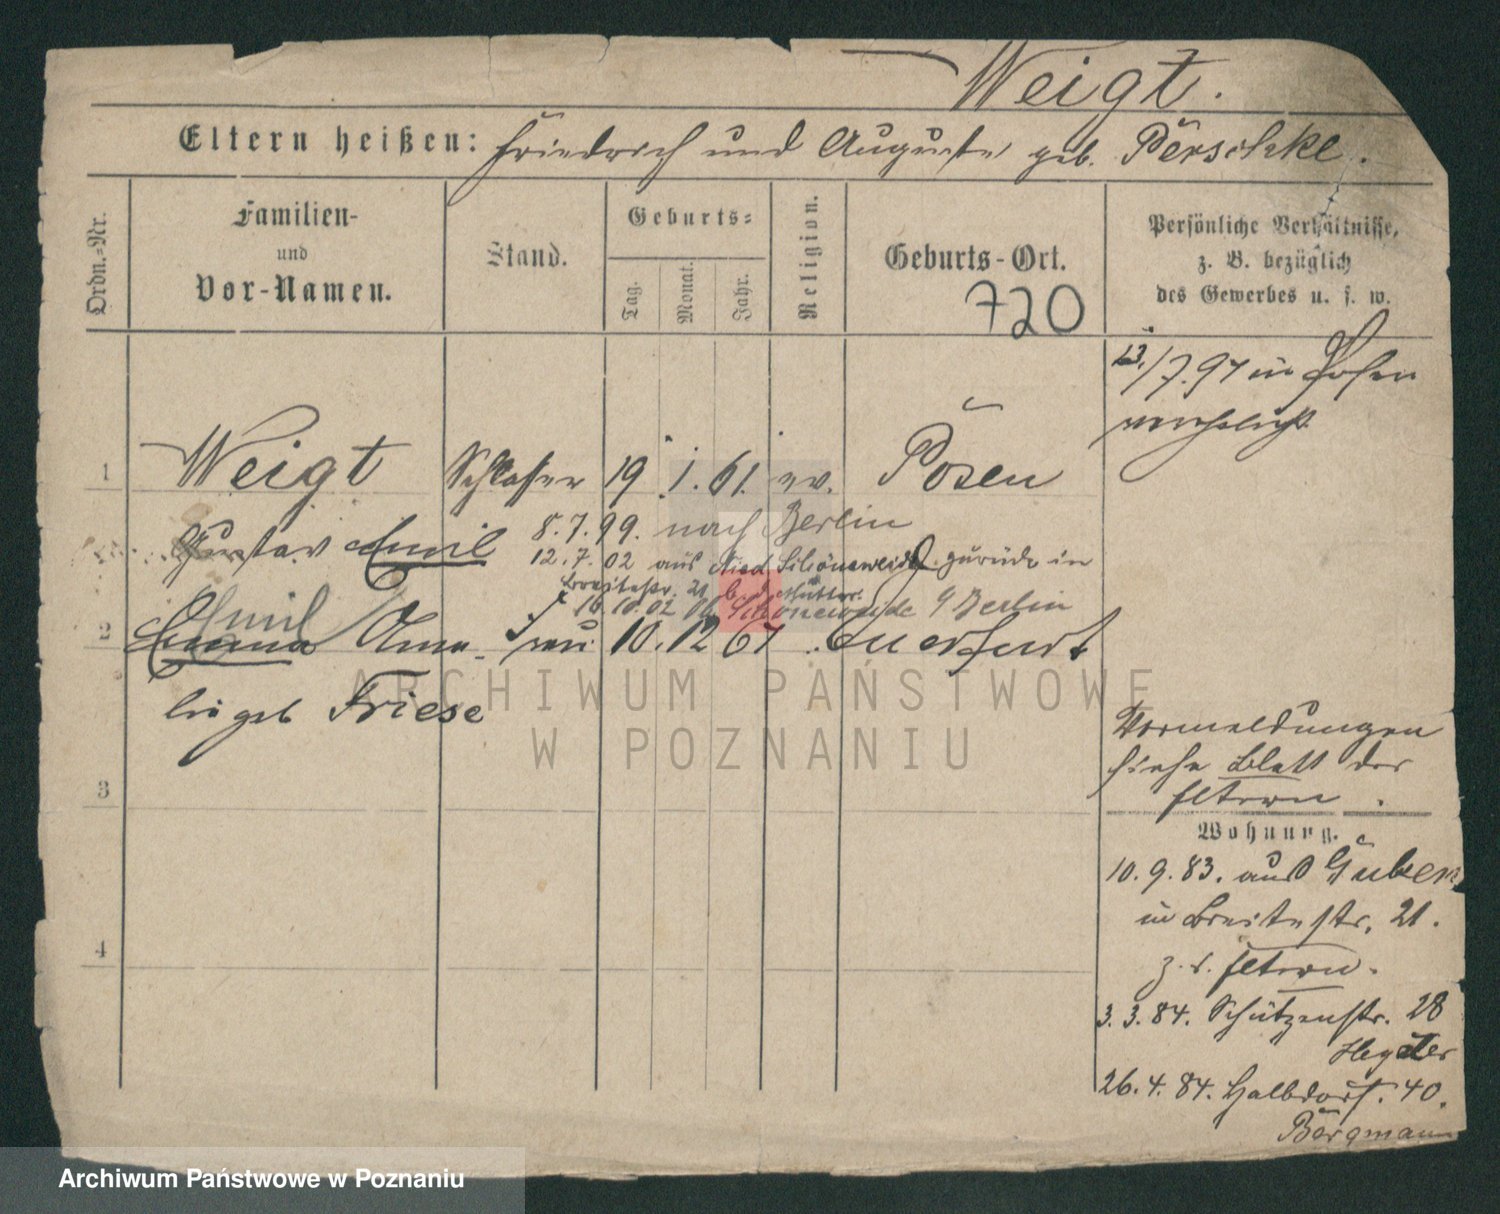 Weigt.
Eltern heißen: Friedrich und Auguste geb. Perschke.
Ordn.-Nr.
Familien-
und
Vor-Namen.
Stand.
Geburts-
Tag.
Monat.
Jahr.
Religion.
Geburts-Ort.
720
Persönliche Verhältnisse,
z. B. bezüglich
des Gewerbes u. s. w.
13./7.97 in Posen
verehelicht
1 Weigt Schlosser 19. 1. 61. ev. Posen
Gustav Emil
8.7.99. nach Berlin
12.7.02 aus Nied. Schöneweide zurück in
Breitestr. 21 b. d. Mutter.
16.10.02 Schöneweide Berlin
Emil
2 Emma Anna Frau 10. 12 67
geb Friese
3
4
Vormeldungen
siehe Blatt der
Eltern.
Wohnung.
10. 9. 83. aus Guben
in Breitestr. 21.
z. d. Eltern.
3. 3. 84. Schützenstr. 28
26. 4. 84. Halbdorfst. 40.
Bergmann
ARCHIWUM PAŃSTWOWE
W POZNANIU
Archiwum Państwowe w Poznaniu